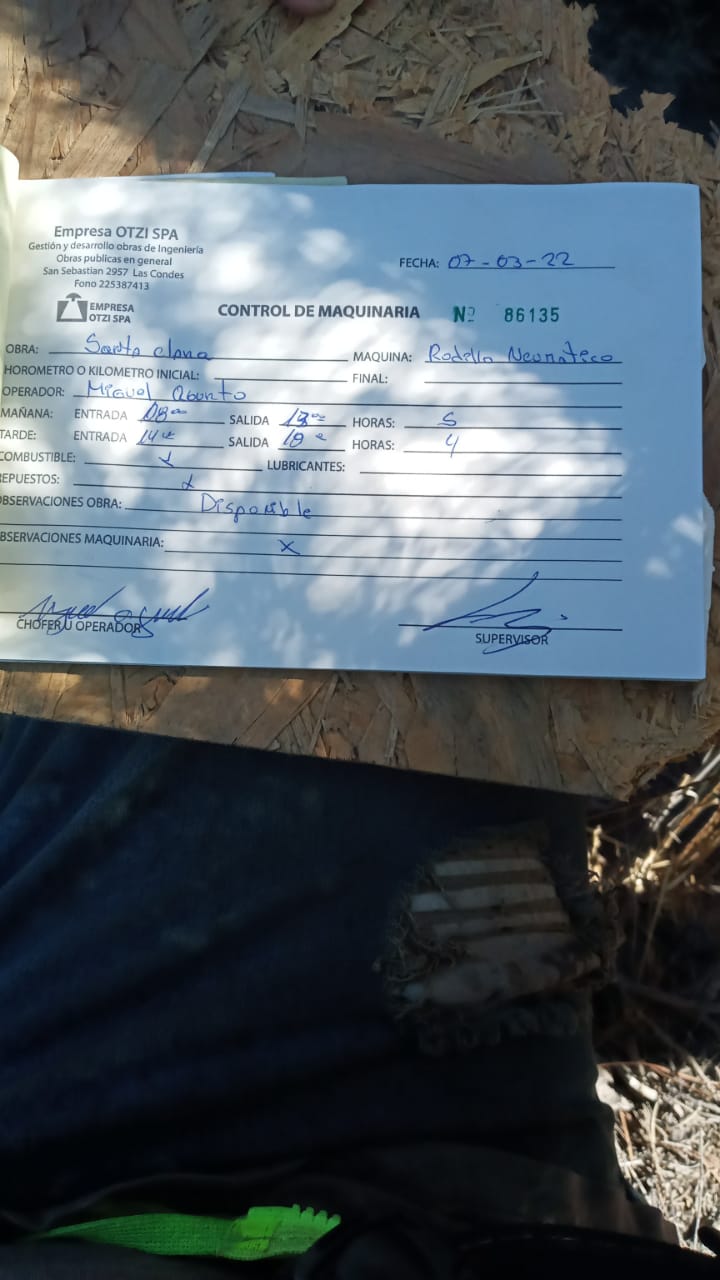 Empresa OTZI SPA
Gestión y desarrollo obras de Ingeniería
Obras publicas en general
San Sebastian 2957 Las Condes
Fono 225387413
FECHA: 07-03-22
EMPRESA
OTZI SPA
CONTROL DE MAQUINARIA Nº 86135
OBRA: Santa clara MAQUINA: Rodillo Neumatico
HOROMETRO O KILOMETRO INICIAL: FINAL:
OPERADOR: Miguel Aburto
MAÑANA: ENTRADA 08 00 SALIDA 13 00 HORAS: 5
TARDE: ENTRADA 14 00 SALIDA 18 00 HORAS: 4
COMBUSTIBLE: x LUBRICANTES:
REPUESTOS: x
OBSERVACIONES OBRA: Disponible
OBSERVACIONES MAQUINARIA: x
CHOFER U OPERADOR SUPERVISOR